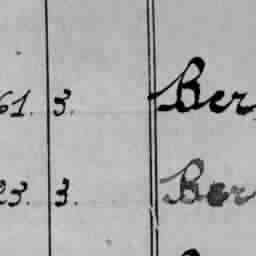 61. 3. Ber
23. 3. Ber